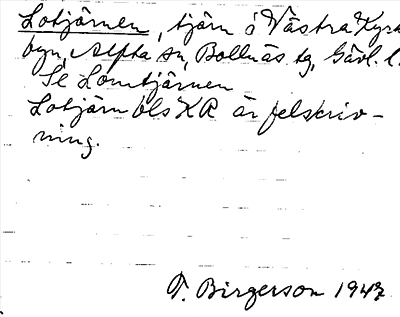 Lotjärnen, tjärn i Västra Kyrk
byn, Alfta sn, Bollnäs tg, Gävl. l.
Se Lomtjärnen
Lotjärn bls KR är felskriv-
ning.
T. Birgerson 1947